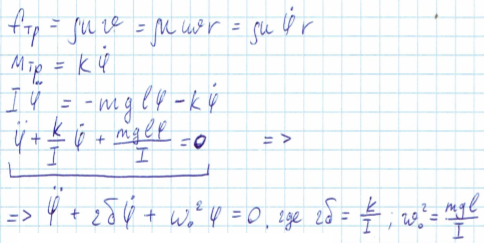 fтр = μv = μωr = μφ̇r
Mтр = kφ̇
Iφ̈ = -mglφ - kφ̇
φ̈ + k/I φ̇ + mglφ/I = 0 =>
=> φ̈ + 2δφ̇ + ω₀²φ = 0, где 2δ = k/I; ω₀² = mgl/I